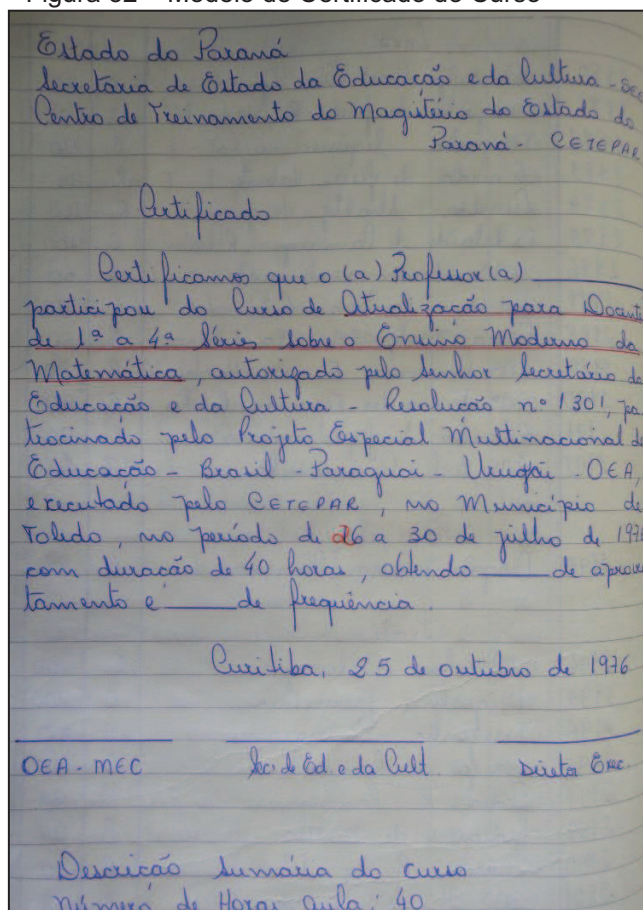 Figura 32 – Modelo de Certificado de Curso
Estado do Paraná
Secretaria de Estado da Educacão e da Cultura - See
Centro de Treinamento do Magistério do Estado do
Paraná - CETEPAR
Certificado
Certificamos que o (a) Professor (a)
participou do Curso de Atualização para Docente
de 1ª a 4ª Séries sobre o Ensino Moderno da
Matemática, autorizado pelo Senhor Secretário de
Educacão e da Cultura - Resolucão nº 1301, pa
trocinado pelo Projeto Especial Multinacional de
Educacão - Brasil - Paraguai - Uruguai - OEA,
executado pelo CETEPAR, no Município de
Toledo, no período de 26 a 30 de julho de 197
com duração de 40 horas, obtendo ____ de aprovei
tamento e ____ de frequência.
Curitiba, 25 de outubro de 1976
OEA - MEC Sec. de Ed. e da Cult. Diretor Exec.
Descricão sumária do curso
número de Horas aula: 40